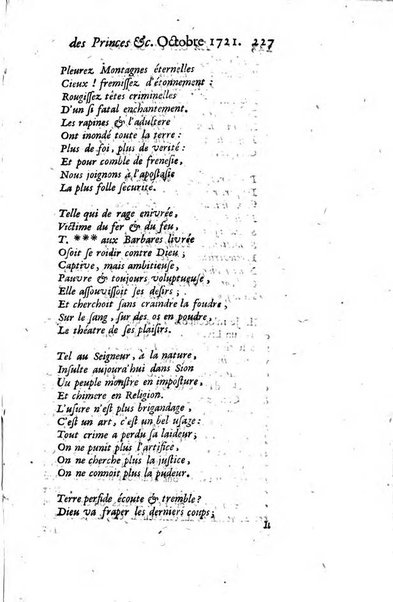 des Princes &c. Octobre 1721. 227
Pleurez Montagnes éternelles
Cieux ! fremissez d'étonnement :
Rougissez tétes criminelles
D'un si fatal enchantement.
Les rapines & l'adultere
Ont inondé toute la terre :
Plus de foi, plus de verité :
Et pour comble de frenesie,
Nous joignons à l'apostasie
La plus folle securité.
Telle qui de rage enivrée,
Victime du fer & du feu,
T. *** aux Barbares livrée
Osoit se roidir contre Dieu ;
Captive, mais ambitieuse,
Pauvre & toûjours voluptueuse,
Elle assouvissoit ses desirs ;
Et cherchoit sans craindre la foudre,
Sur le sang, sur des os en poudre,
Le théatre de ses plaisirs.
Tel au Seigneur, à la nature,
Insulte aujourd'hui dans Sion
Uu peuple monstre en imposture,
Et chimere en Religion.
L'usure n'est plus brigandage,
C'est un art, c'est un bel usage :
Tout crime a perdu sa laideur ;
On ne punit plus l'artifice,
On ne cherche plus la justice,
On ne connoit plus la pudeur.
Terre perfide écoute & tremble ?
Dieu va fraper les derniers coups ;